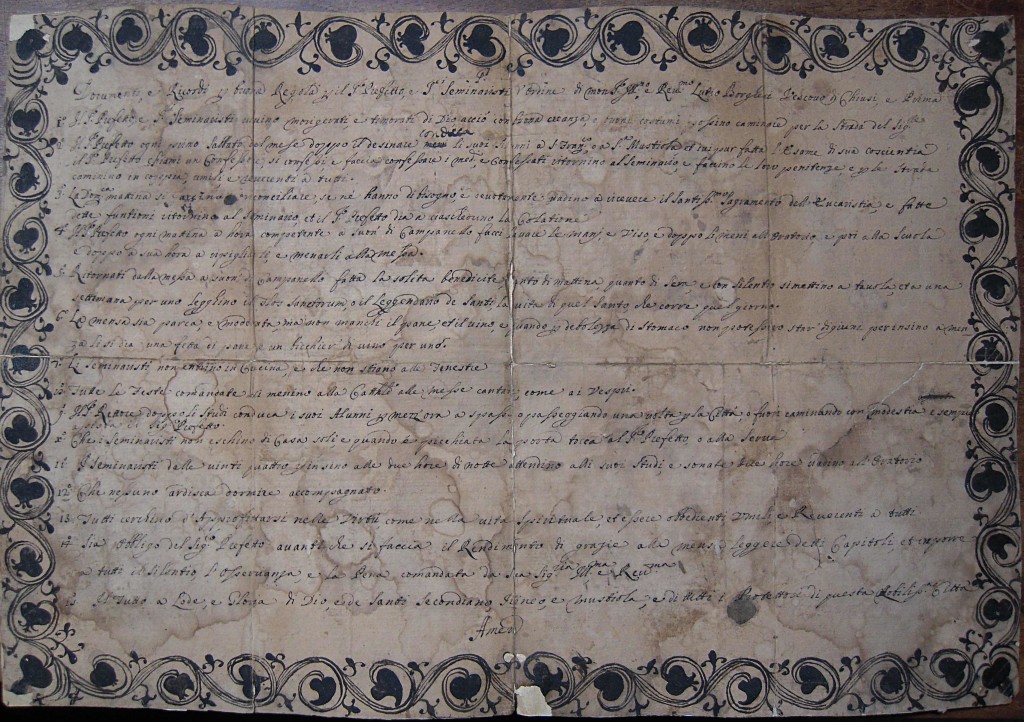 Documenti, e Ricordi p buona Regola p il Sr Prefetto, e Sri Seminaristi d'ordine di Monsr Illmo e Revmo Lutio Borghesi Vescovo di Chiusi, e Prima
1º Sr Prefetto, e Sri Seminaristi vivino morigerati e timorati di Dio acciò con buona creanza, e buoni costumi possino caminare per la strada del Sigre
2º Sr Prefetto ogni primo Sabbato del mese doppo il desinare conduca li suoi Alunni a S. Franco, o a Sta Mustiola et ivi pur fatta l'Esame di sua coscientia
il Sr Prefetto chiami un Confessore, si confessi e faccia confessare i medi, e Confessati ritornino al Seminario, e faccino le loro penitenze e p le strade
caminino in coppia, umili e reverenti a tutti.
3º La Domca mattina si riconciliare, se ne hanno di bisogno, e reverentemente vadino a ricevere il Santissmo Sagramento dell'Eucaristia, e fatte
funtioni ritornino al Seminario et il Sr Prefetto dia a ciascheduno la Colatione
4º Il Sr Prefetto ogni mattina a hora competente a suon di Campanello facci lavare le mani, e viso, e doppo li meni all'Oratorio, e poi alla Scuola
e doppo a sua hora e menarli alla messa.
5º Ritornati dalla messa a suon di campanello fatta la solita benedicite tanto di mattina, quanto di sera, e con silentio si mettino a tavola, et a una
settimana per uno legghino il Flos Sanctorum, o il Leggendario de Santi la vita di quel Santo, che corre quel giorno.
6º La mensa sia parca, e moderata, ma non manchi il pane, et il vino e quando p debolezza di stomaco non potessero star digiuni per insino a men
sa lo si dia una fetta di pane e un bicchier di vino per uno.
7º Li seminaristi non entrino in Cucina, e che non stiano alle finestre
8º Tutte le Feste comandate li menino alla Cattedle alle messe cantate, come ai Vespri.
9º Il Sr Rettore doppo li studi conduca i suoi Alunni p mezz'ora a spasso, o passeggiando una volta p la Città, o fuori caminando con modestia e sempre
Sr Prefetto
10º Che i Seminaristi non eschino di Casa soli e quando è picchiata la porta tocca al Sr Prefetto o alla Serva
11 I seminaristi dalle vinti quattro p insino alle due hore di notte attendino alli suoi studi, e sonate due hore vadino all'Oratorio
12º Che nessuno ardisca dormire accompagnato.
13 Tutti cerchino d'Approfittarsi nelle Virtù come nella vita spirituale, et essere obedienti Umili e Reverenti a tutti
14 Sia Obbligo del Sigr Prefetto avanti che si faccia il Rendimento di grazie alla mensa leggere detti Capitoli, et imporre
a tutti il silentio l'Osservanza, e la Pena comandata da sua Sigria Illma e Revma
15 Il tutto a Lode, e Gloria di Dio, e de Santi Secondiano, Ireneo, e Mustiola, e di tutti i Protettori di questa Nobilissma Città
Amen